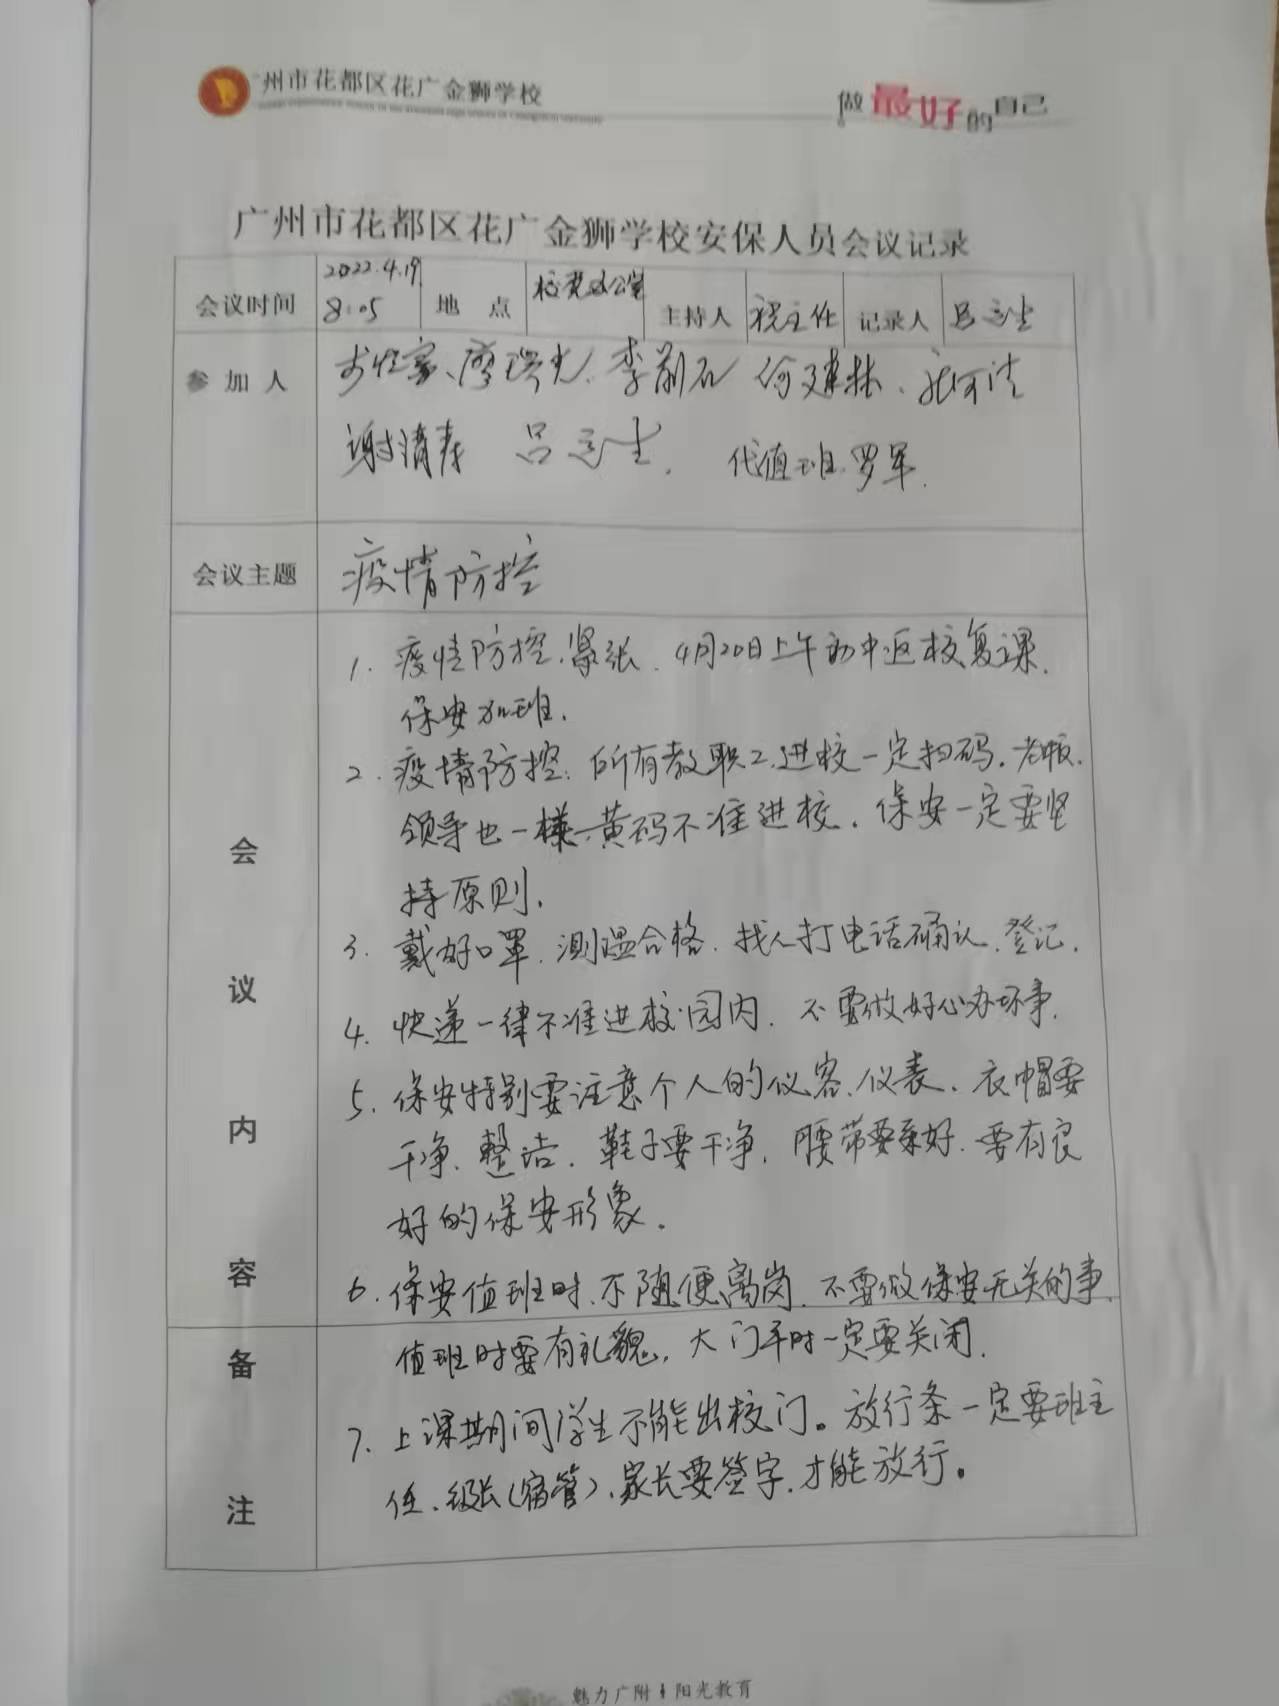 广州市花都区花广金狮学校
做最好的自己
广州市花都区花广金狮学校安保人员会议记录
会议时间 2022.4.19 8:05 地点 校 办公室 主持人 主任 记录人 吕志生
参加人 廖 李 何建林、
谢清春 吕志生. 代值班 罗军.
会议主题 疫情防控
会议内容
1. 疫情防控紧张. 4月20日上午初中返校复课.
保安加班.
2. 疫情防控: 所有教职工进校一定扫码. 老板.
领导也一様黄码不准进校. 保安一定要坚
持原则.
3. 戴好口罩. 测温合格. 找人打电话确认、登记.
4. 快递一律不准进校园内. 不要做好心办坏事.
5. 保安特别要注意个人的仪容、仪表. 衣帽要
干净、整洁. 鞋子要干净. 腰带要系好. 要有良
好的保安形象.
6. 保安值班时、不随便离岗. 不要做保安无关的事.
备注
值班时要有礼貌. 大门平时一定要关闭.
7. 上课期间学生不能出校门。放行条一定要班主
任、级长(宿管)、家长要签字. 才能放行。
魅力广附 阳光教育